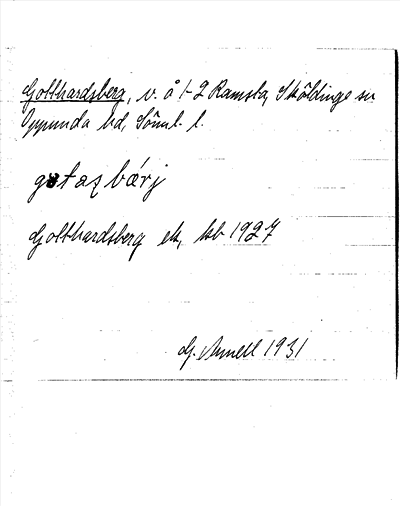 Gotthardsberg, v. å 1-2 Ramsta, Sköldinge sn
Oppunda hd, Söml. l.
gotaʒbærj
Gotthardsberg ek, hsb 1927
G. Arnell 1931